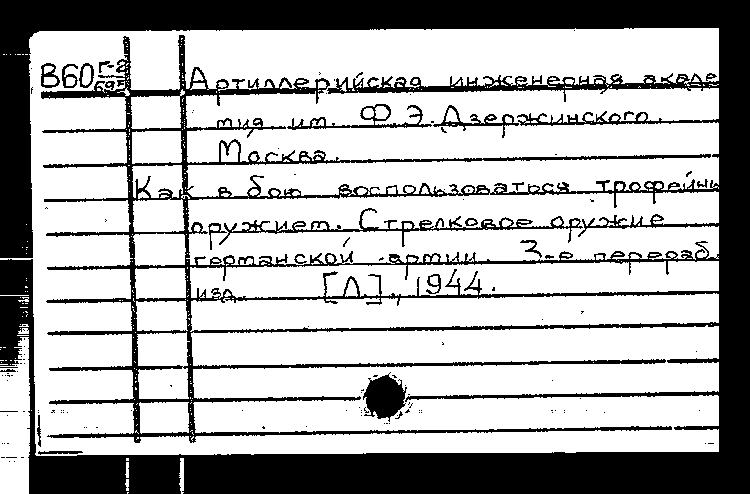 В60 г-2/691 Артиллерийская инженерная акаде
мия им. Ф.Э.Дзержинского.
Москва.
Как в бою воспользоваться трофейны
оружием. Стрелковое оружие
германской армии. 3-е перераб.
изд. [Л.], 1944.